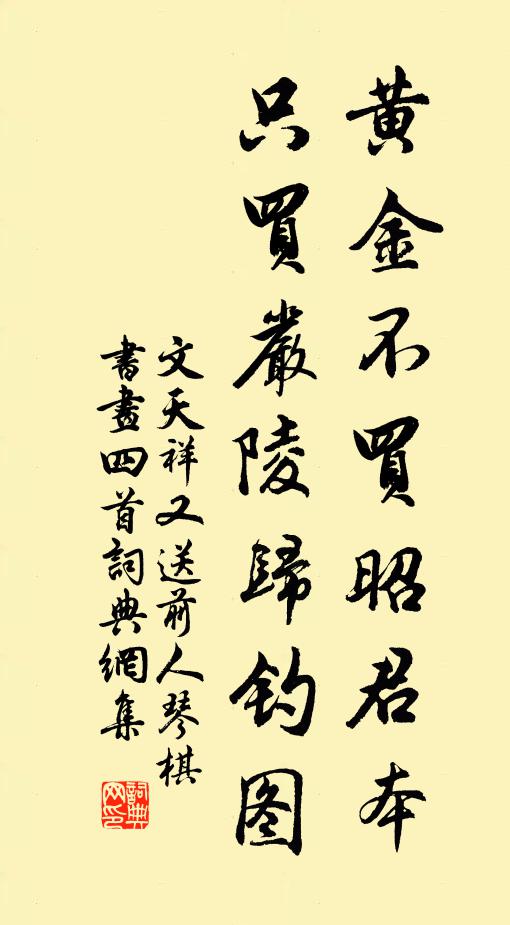 黄金不買昭君本
只買嚴陵歸钓图
文天祥又送前人琴棋
書畫四首詞典網集
詞典网印